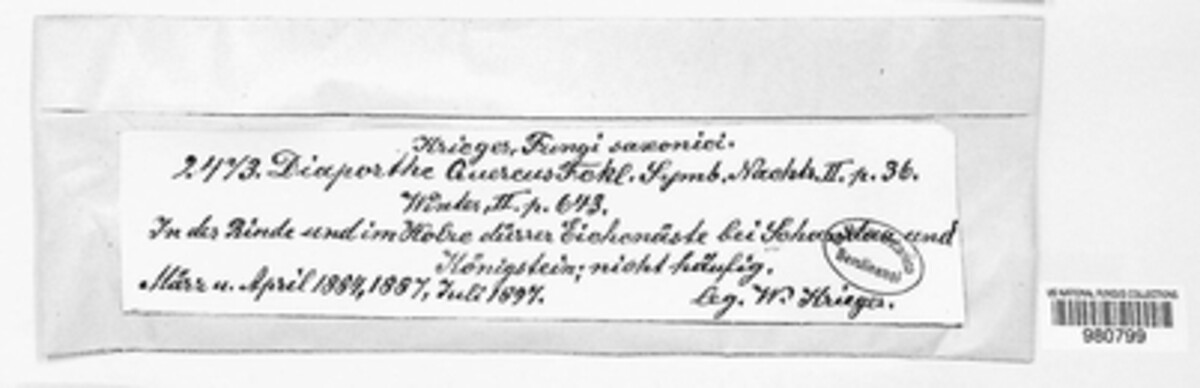 Krieger, Fungi saxonici.
Diaporthe Quercus Fckl. Symb. Nachtr. II. p. 36.
Winter, II. p. 643.
In der Rinde und im Holze dürrer Eichenäste bei Schandau und
Königstein; nicht häufig.
März u. April 1884, 1887, Juli 1897.
leg. W. Krieger.
US NATIONAL FUNGUS COLLECTIONS
980799